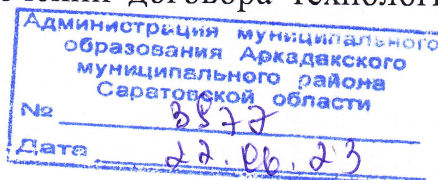 договора технолог
Администрация муниципального
образования Аркадакского
муниципального района
Саратовской области
№ 3977
Дата 22.06.23